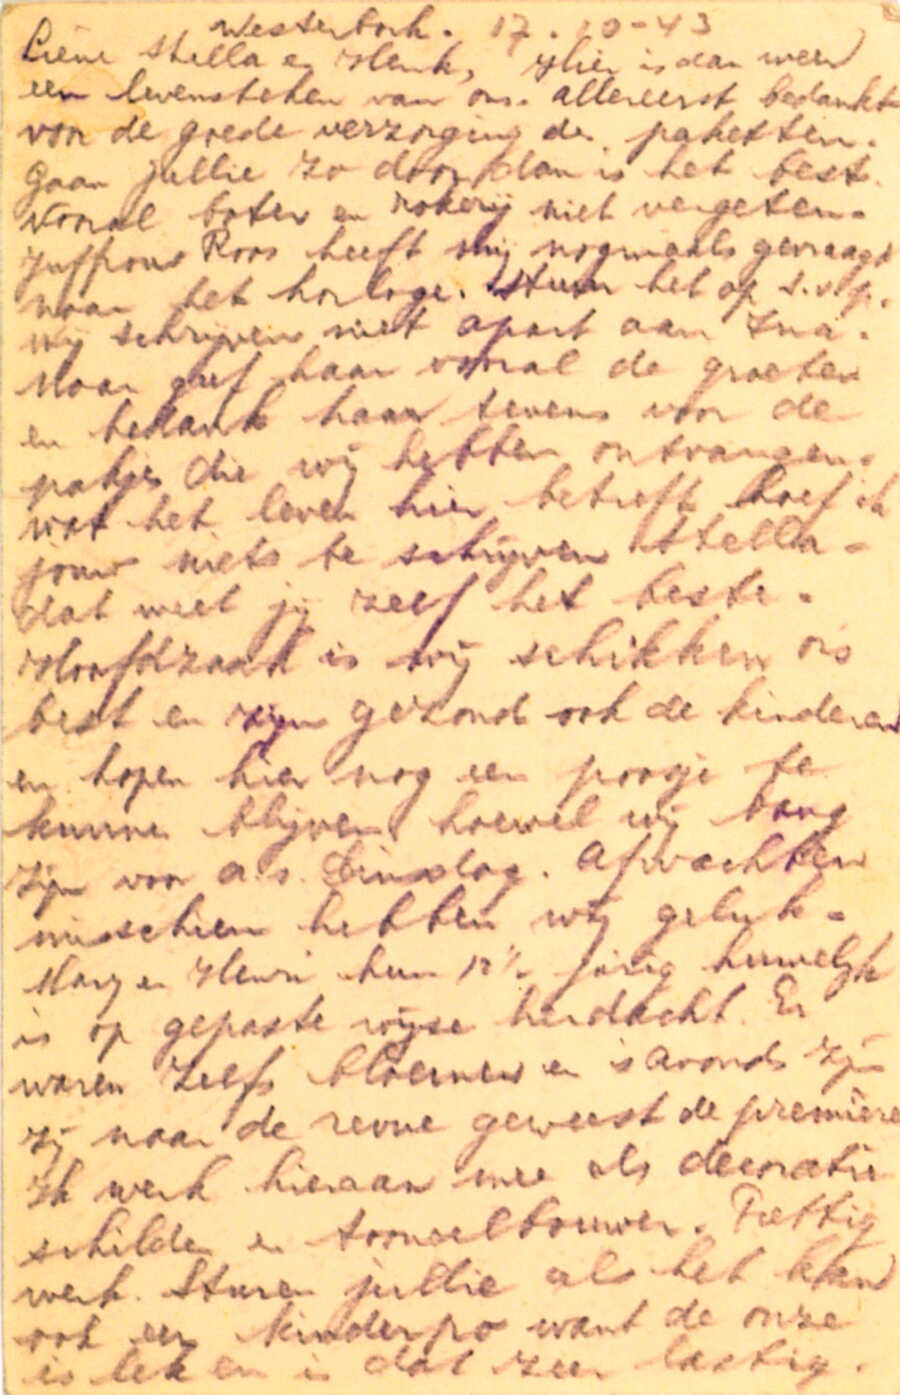 Westerbork. 17.10-43
Liene Stella en Henk, Hier is dan weer
een levensteken van ons. Allereerst bedankt
voor de goede verzorging der paketten.
Gaan jullie zo door dan is het best.
Vooral boter en rokerij niet vergeten.
Juffrouw Roos heeft mij nogmaals gevraagd
naar het horloge. Stuur het op s.v.p.
Wij schrijven niet apart aan Ina.
Maar geef haar vooral de groeten
en bedank haar tevens voor de
pakjes die wij hebben ontvangen.
Wat het leven hier betreft hoef ik
jouw niets te schrijven Stella.
dat weet jij zelf het beste.
Hoofdzaak is wij schikken ons
best en zijn gezond ook de kinderen
en hopen hier nog een poosje te
kunnen blijven hoewel wij bang
zijn voor a.s. Dinsdag. Afwachten
misschien hebben wij geluk.
Mary en Henri hun 12½ jarig huwelijk
is op gepaste wijse herdacht. Er
waren zelfs bloemen en s'avonds zijn
zij naar de revue geweest de première
Ik werk hieraan mee als decoratie
schilder en tooneelbouwer. Prettig
werk. Sturen jullie als het kan
ook een kinderpo want de onze
is lek en is dat zeer lastig.